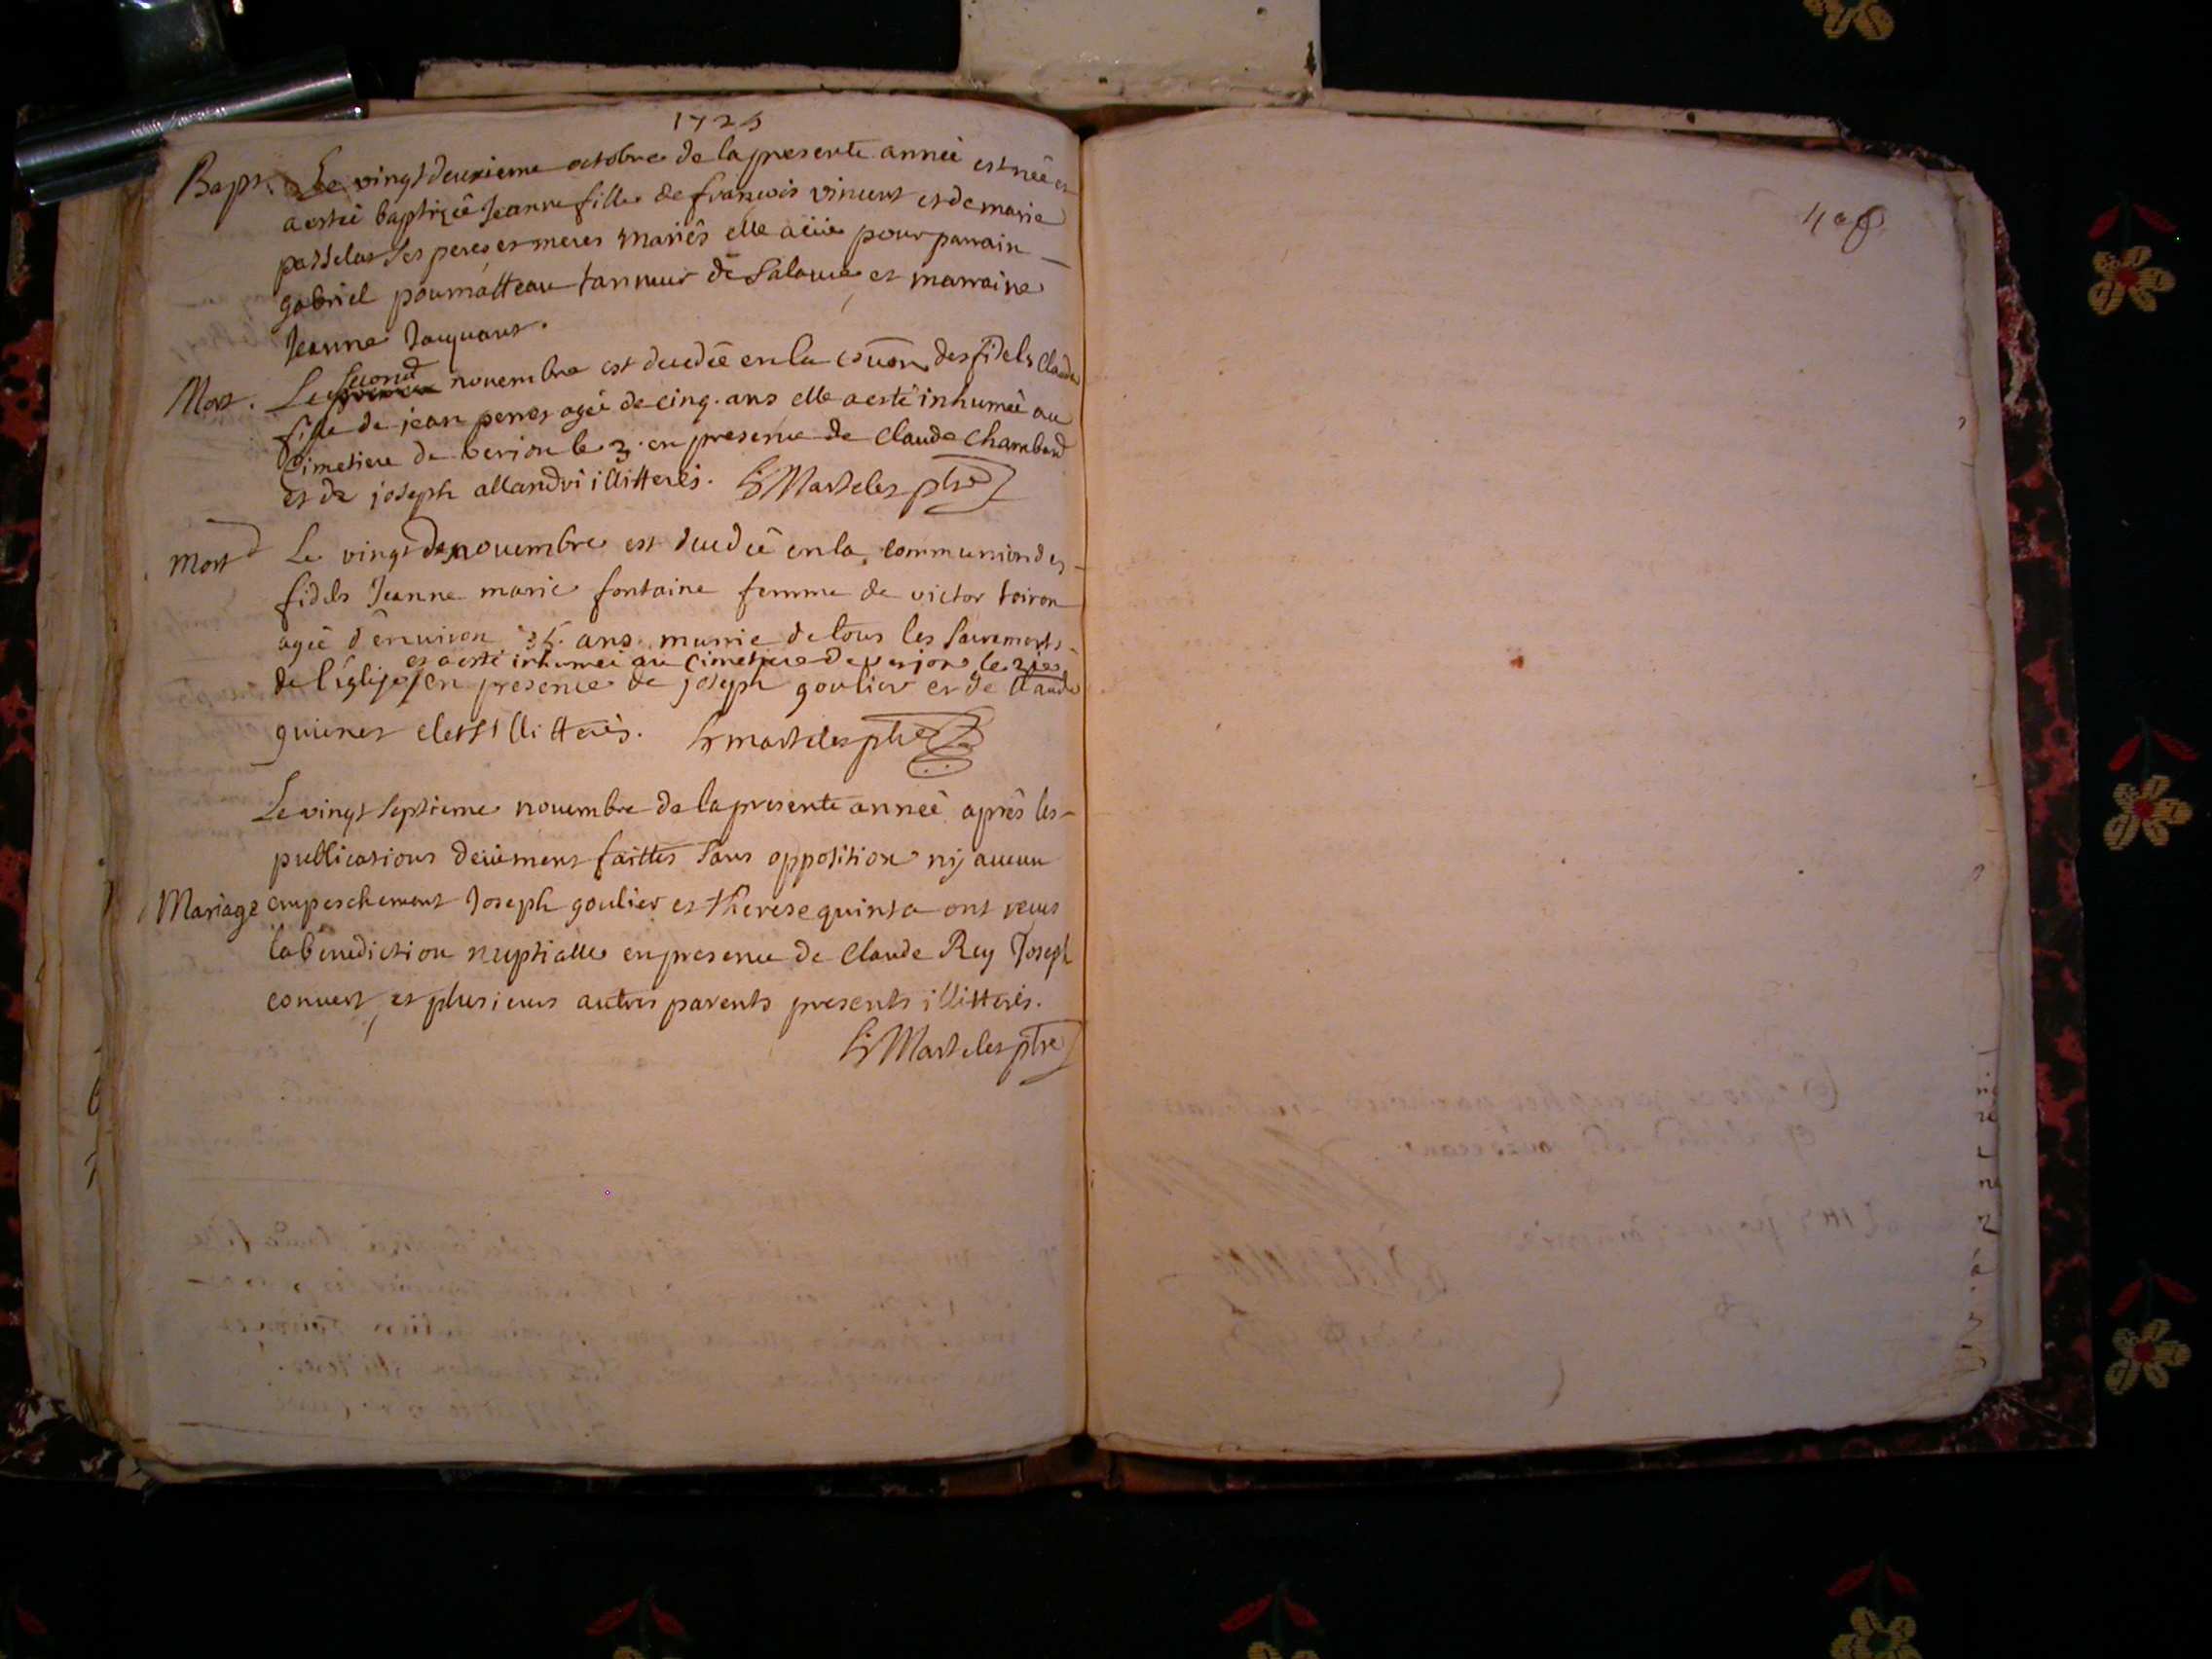 1725
Bapt. Le vingt deuxieme octobre de la presente anneé est neé et
a estée baptizeé Jeanne fille de françois vincent et de marie
passelat ses peres et meres mariés elle a eüe pour parrain
gabriel poumatteau tanneur de Salaura et marraine
Jeanne Jacquant.
Mort. Le second novembre est decedeé en la coüon des fidels Claude
fille de jean perret ageé de cinq ans elle a esté inhumeé au
Cimetiere de verion le 3. en presence de Claude Chambard
et de joseph allandri illitterés. Sr Martelet ptre
Mort Le vingt de novembre est decedeé en la communion des
fidels Jeanne marie fontaine femme de victor toiron
ageé d'environ 35. ans munie de tous les sacrements
et a esté inhumeé au Cimetiere de verjon le 21e
de l'église / en presence de joseph goulier et de Claude
guienet illitterés. Sr martelet ptre
Le vingt septieme novembre de la presente anneé aprês les
publications deuëment faittes sans opposition nÿ aucun
Mariage empeschement Joseph goulier et therese quinta ont receus
la benediction nuptialle en presence de Claude Rey Joseph
convert, et plusieurs autres parents presents illitterés.
Sr Martelet ptre
408